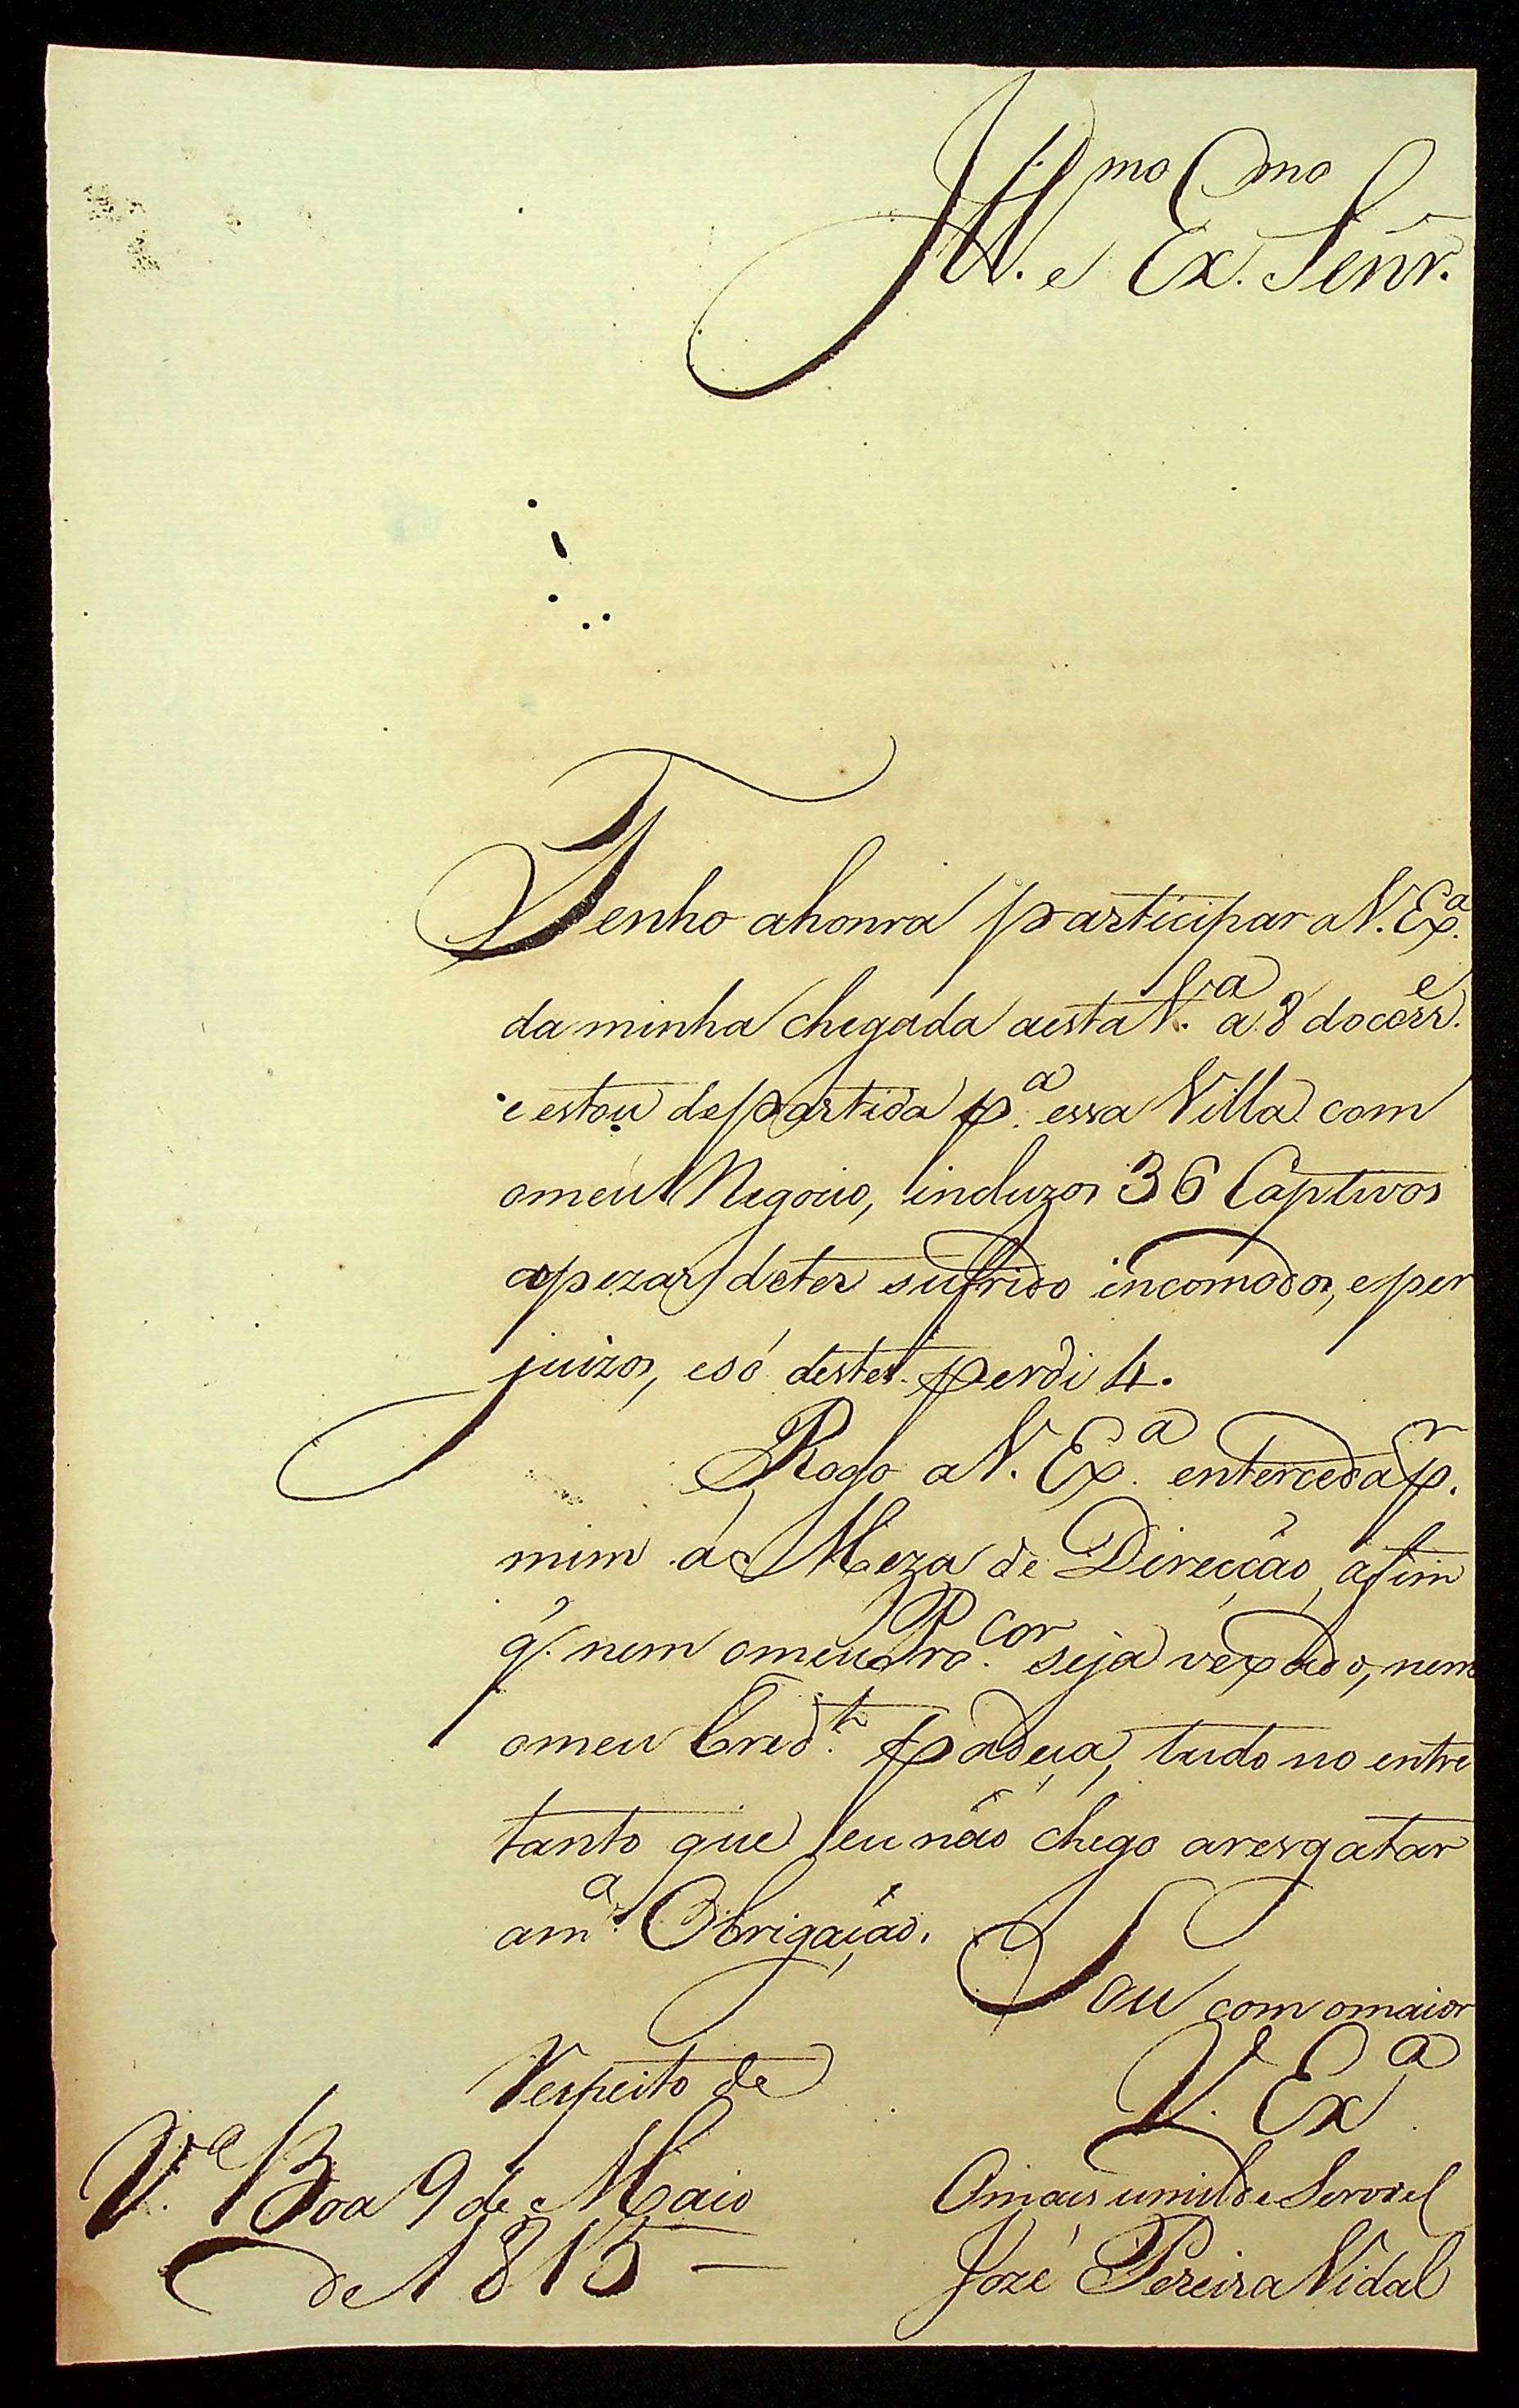 Ill.mo e Ex.mo Senr.
Tenho ahonra participar a V. Exa.
da minha chegada aesta V.a a 8 do corr.e
e estou departida p.a essa Villa com
omeu Negocio, incluzos 36 Captivos
apezar deter sufrido incomodos, eper
juizos, esó destes perdi 4.
Rogo a V. Ex.a enterceda p.r
mim á Meza de Direcção, afim
q. nem omeu Pro.cor seja vexado, nem
omeu Cred.t padeça, tudo no entre
tanto que eu não chego aresgatar
am.a Obrigação.
Sou com omaior
Respeito de
V. Ex.a
V.a Boa 9 de Maio
de 1815 —
Omais umilde Servo el
Jozé Pereira Vidal